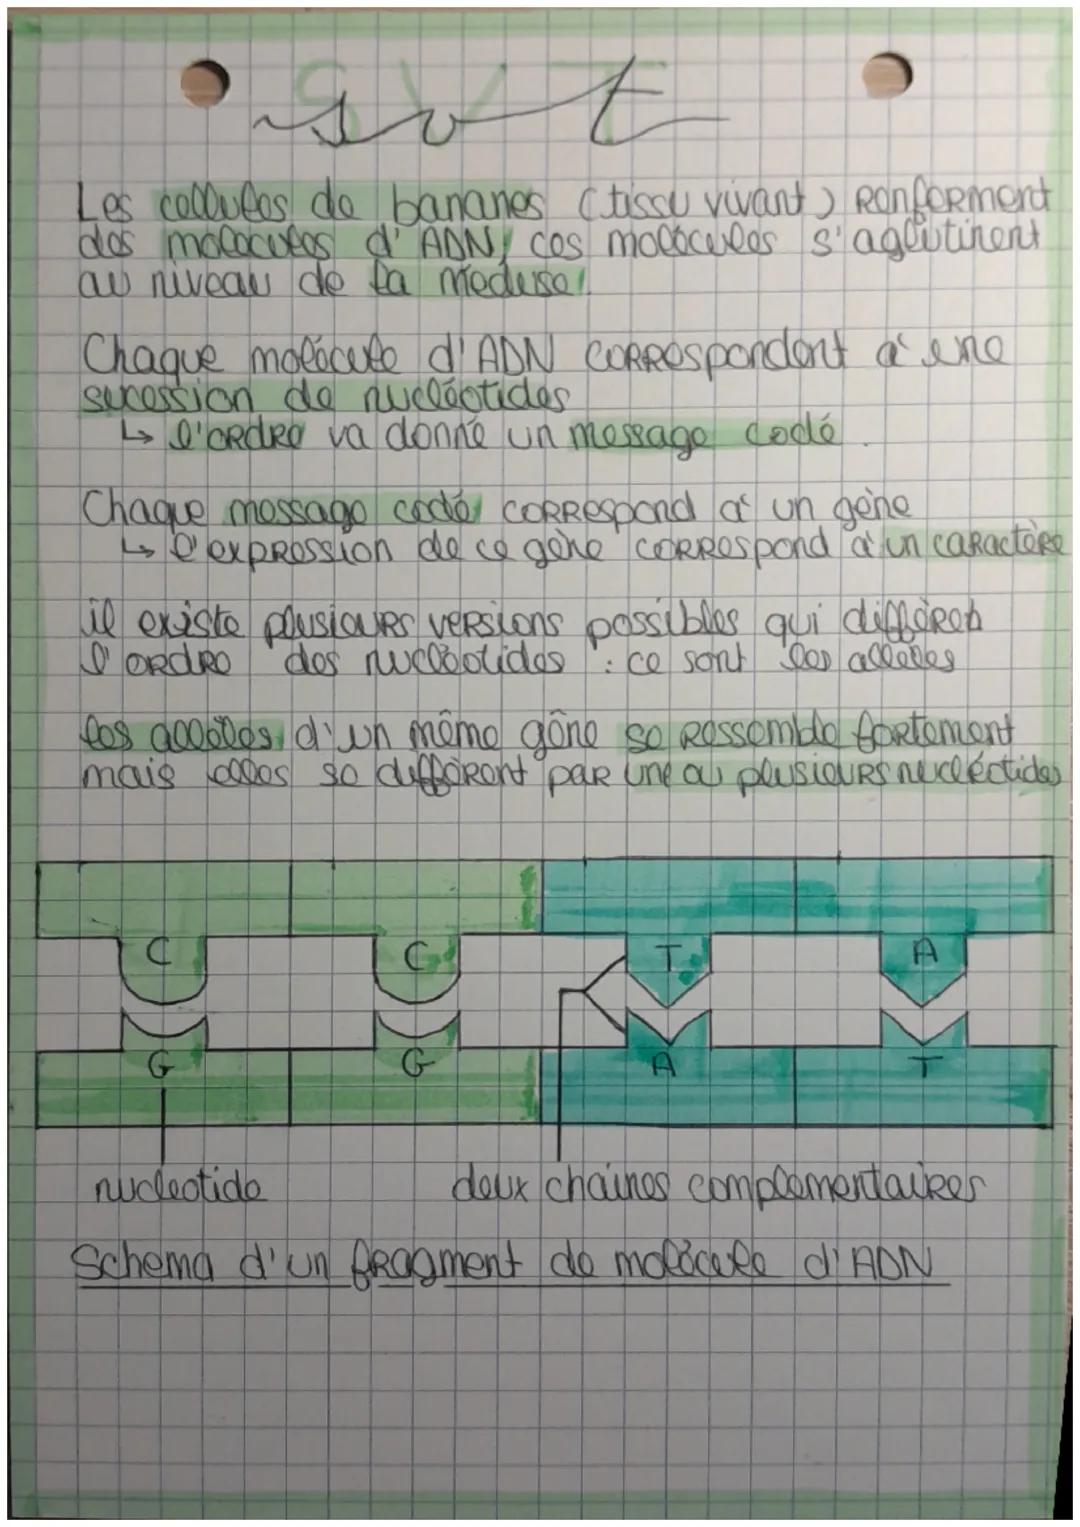 svt
Les cellules de bananes (tissu vivant) Renferment
des molécules d'ADN, ces molécules s'aglutinent
au niveau de la meduse.
Chaque molécule d'ADN correspondent à une
sucession de nucléotides
↳ l'ordre va donné un message codé.
Chaque message codé correspond à un gène
↳ l'expression de ce gène correspond à un caractère
il existe plusieurs versions possibles qui diffèren
l'ordre des nucléotides : ce sont les allèles
les allèles d'un même gêne se ressemble fortement
mais elles se diffèrent par une ou plusieurs nucléotides
C C T A
G G A T
nucleotide deux chaines complementaires
Schema d'un fragment de molécule d'ADN